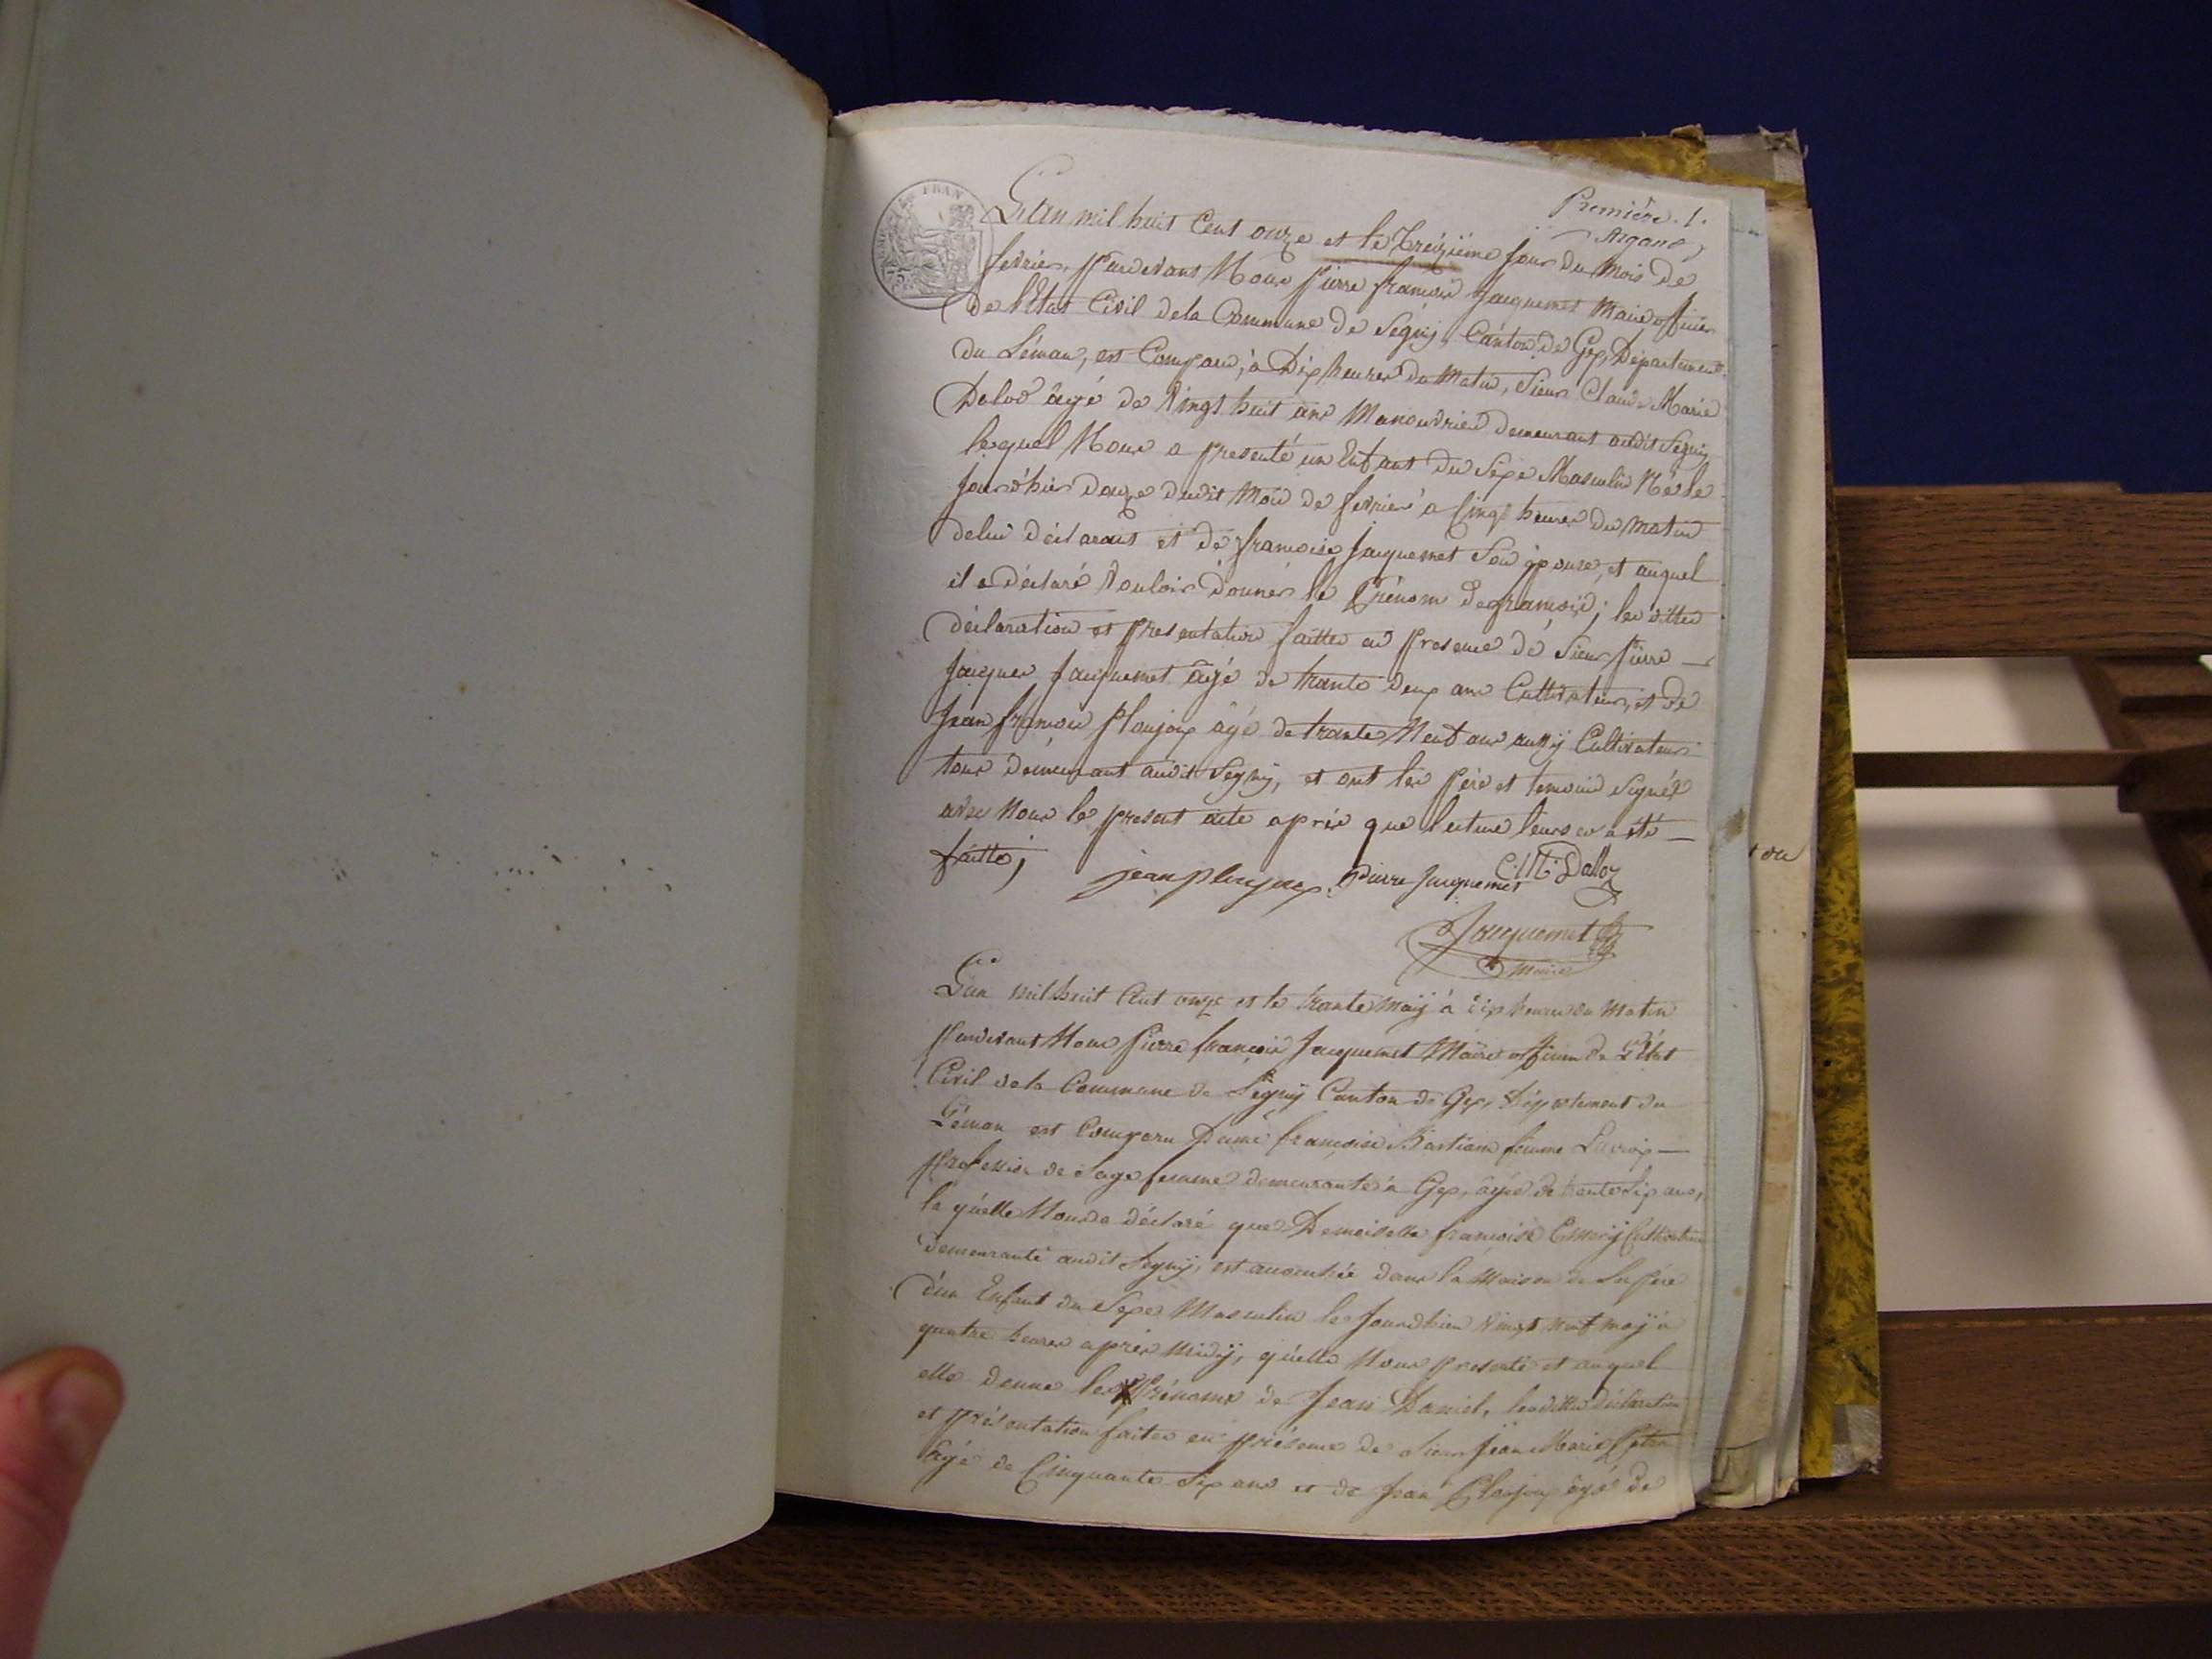 Première . 1.
Argand
L'an mil huit Cent onze et le treizieme jour du Mois de
fevrier, pardevant Nous pierre francois Jacquemet Maire officier
de l'Etat Civil dela Commune de Segny, Canton de Gex, Département
du Léman, est Comparu, à Dix heures du Matin, Sieur Claude Marie
Daloz âgé de Vingt huit ans Manouvrier demeurant audit Segny
lequel Nous a presenté un Enfant du Sexe Masculin Né le
jour d'hier douze dudit Mois de fevrier à Cinq heures du matin
delui déclarant et de francoise Jacquemet Son épouse, et auquel
il a déclaré Vouloir donner le Prénom de francois; les dittes
déclaration et presentation faittes en presence de Sieur pierre
Jacques Jacquemet âgé de trante deux ans Cultivateur, et de
Jean francois Plonjoux âgé de trante Neuf ans aussy Cultivateur
tous demeurant audit Segny, et ont les père et temoins Signés
avec Nous le present acte après que lecture leurs en a été
faitte;
jean plonjoux Pierre Jacquemet C. M. Dalloz
Jacquemet
Maire
L'an mil huit Cent onze et le trante maÿ à dix heures du Matin
pardevant Nous pierre francois Jacquemet Maire officier de L'Etat
Civil dela Commune de Segny Canton de Gex, Département du
Léman est Comparu Dame francoise Bastian femme Lacroix
profession de Sage femme demeurante à Gex, âgée de trante Six ans,
la quelle Nous a déclaré que Demoiselle francoise Emery Cultivatrice
demeurante audit Segny, est accouchée dans la Maison de Son père
d'un Enfant du Sexe Masculin le Jour d'hier Vingt neuf maÿ à
quatre heures après Midy, qu'elle Nous presente et auquel
elle donne les Prénoms de Jean Daniel, les dittes déclaration
et présentation faites en présence de Sieur Jean Marie
âgé de Cinquante Six ans et de Jean Plonjoux âgé de